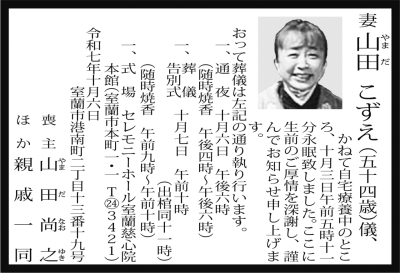 妻 山田 こずえ(五十四歳)儀、
かねて自宅療養中のとこ
ろ、十月三日午前五時十一
分永眠致しました。ここに
生前のご厚情を深謝し、謹
んでお知らせ申し上げま
す。
おって葬儀は左記の通り執り行います。
一、通夜 十月六日 午後六時
(随時焼香 午後四時~午後六時)
一、葬儀 告別式 十月七日 午前十時
(出棺同十一時)
(随時焼香 午前九時~午前十時)
一、式場 セレモニーホール室蘭慈心院
本館(室蘭市本町二-一 T㉔3421)
令和七年十月六日
室蘭市港南町二丁目十三番十九号
喪主 山田尚之
ほか 親戚一同